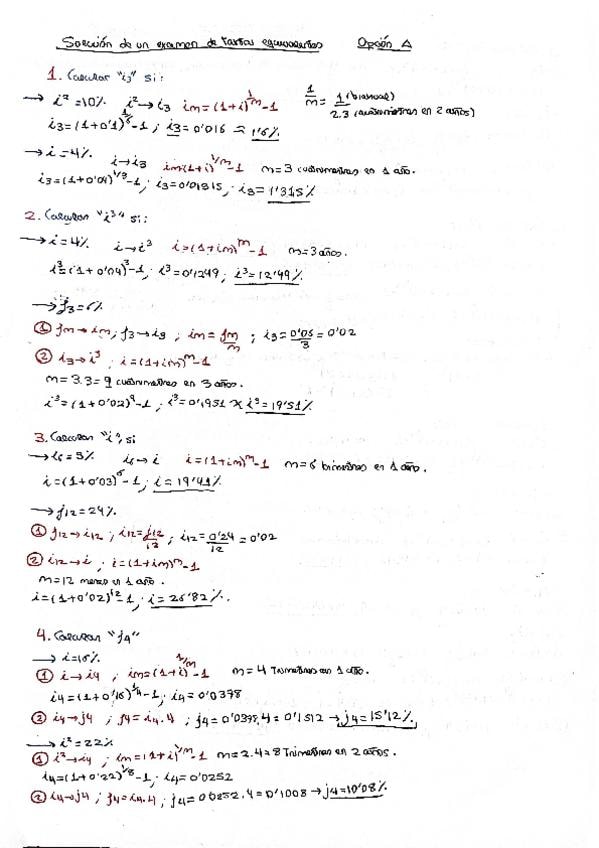 Solución de un examen de Tantos equivalentes Opción A
1. Calcular "i3" si:
→ i² = 10% i² → i3 im = (1+i)^1/m - 1 1/m = 1 (bianual) / 2.3 (cuatrimestres en 2 años)
i3 = (1+0'1)^1/6 - 1 ; i3 = 0'016 = 1'6%
→ i = 4% i → i3 im(1+i)^1/m - 1 m = 3 cuatrimestres en 1 año.
i3 = (1+0'04)^1/3 - 1 ; i3 = 0'01315 ; i3 = 1'315%
2. Calcular "i³" si:
→ i = 4% i → i³ i = (1+im)^m - 1 m = 3 años.
i³ = (1+0'04)³ - 1 ; i³ = 0'1249 ; i³ = 12'49%
→ j3 = 6%
① jm → im, j3 → i3 ; im = jm/m ; i3 = 0'06/3 = 0'02
② i3 → i³ ; i = (1+im)^m - 1
m = 3.3 = 9 cuatrimestres en 3 años.
i³ = (1+0'02)^9 - 1 ; i³ = 0'1951 % i³ = 19'51%
3. Calcular "i", si
→ i6 = 3% i6 → i i = (1+im)^m - 1 m = 6 bimestres en 1 año.
i = (1+0'03)^6 - 1 ; i = 19'41%
→ j12 = 24%
① j12 → i12 ; i12 = j12/12 ; i12 = 0'24/12 = 0'02
② i12 → i ; i = (1+im)^m - 1
m = 12 meses en 1 año.
i = (1+0'02)^12 - 1 ; i = 26'82%.
4. Calcular "j4"
→ i = 16%
① i → i4 ; im = (1+i)^1/m - 1 m = 4 Trimestres en 1 año.
i4 = (1+0'16)^1/4 - 1 ; i4 = 0'0378
② i4 → j4 ; j4 = i4.4 ; j4 = 0'0378.4 = 0'1512 → j4 = 15'12%
→ i² = 22%
① i² → i4 ; im = (1+i)^1/m - 1 m = 2.4 = 8 Trimestres en 2 años.
i4 = (1+0'22)^1/8 - 1 ; i4 = 0'0252
② i4 → j4 ; j4 = i4.4 ; j4 = 0'0252.4 = 0'1008 → j4 = 10'08%